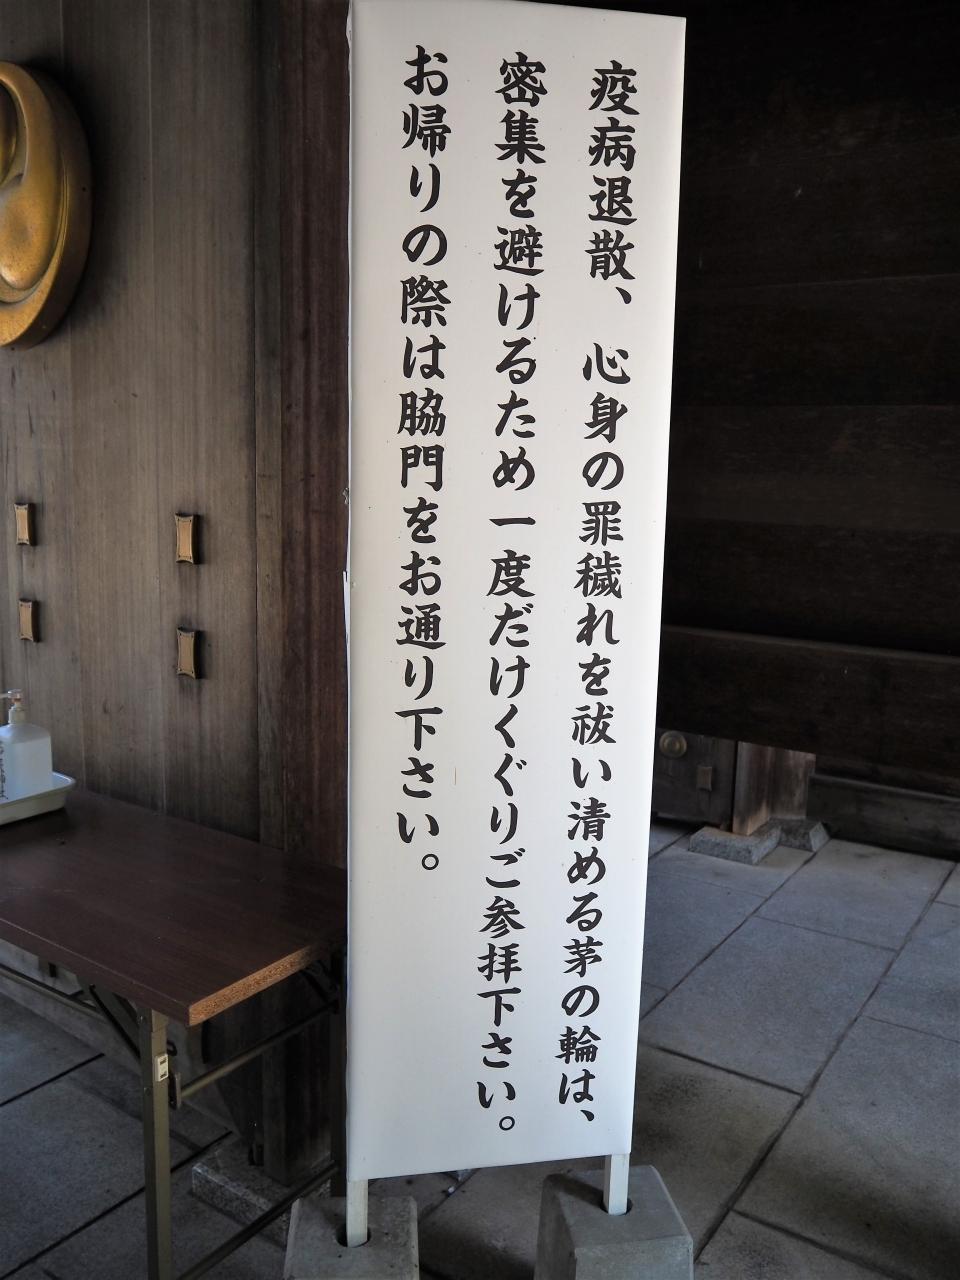 疫病退散、心身の罪穢れを祓い清める茅の輪は、
密集を避けるため一度だけくぐりご参拝下さい。
お帰りの際は脇門をお通り下さい。